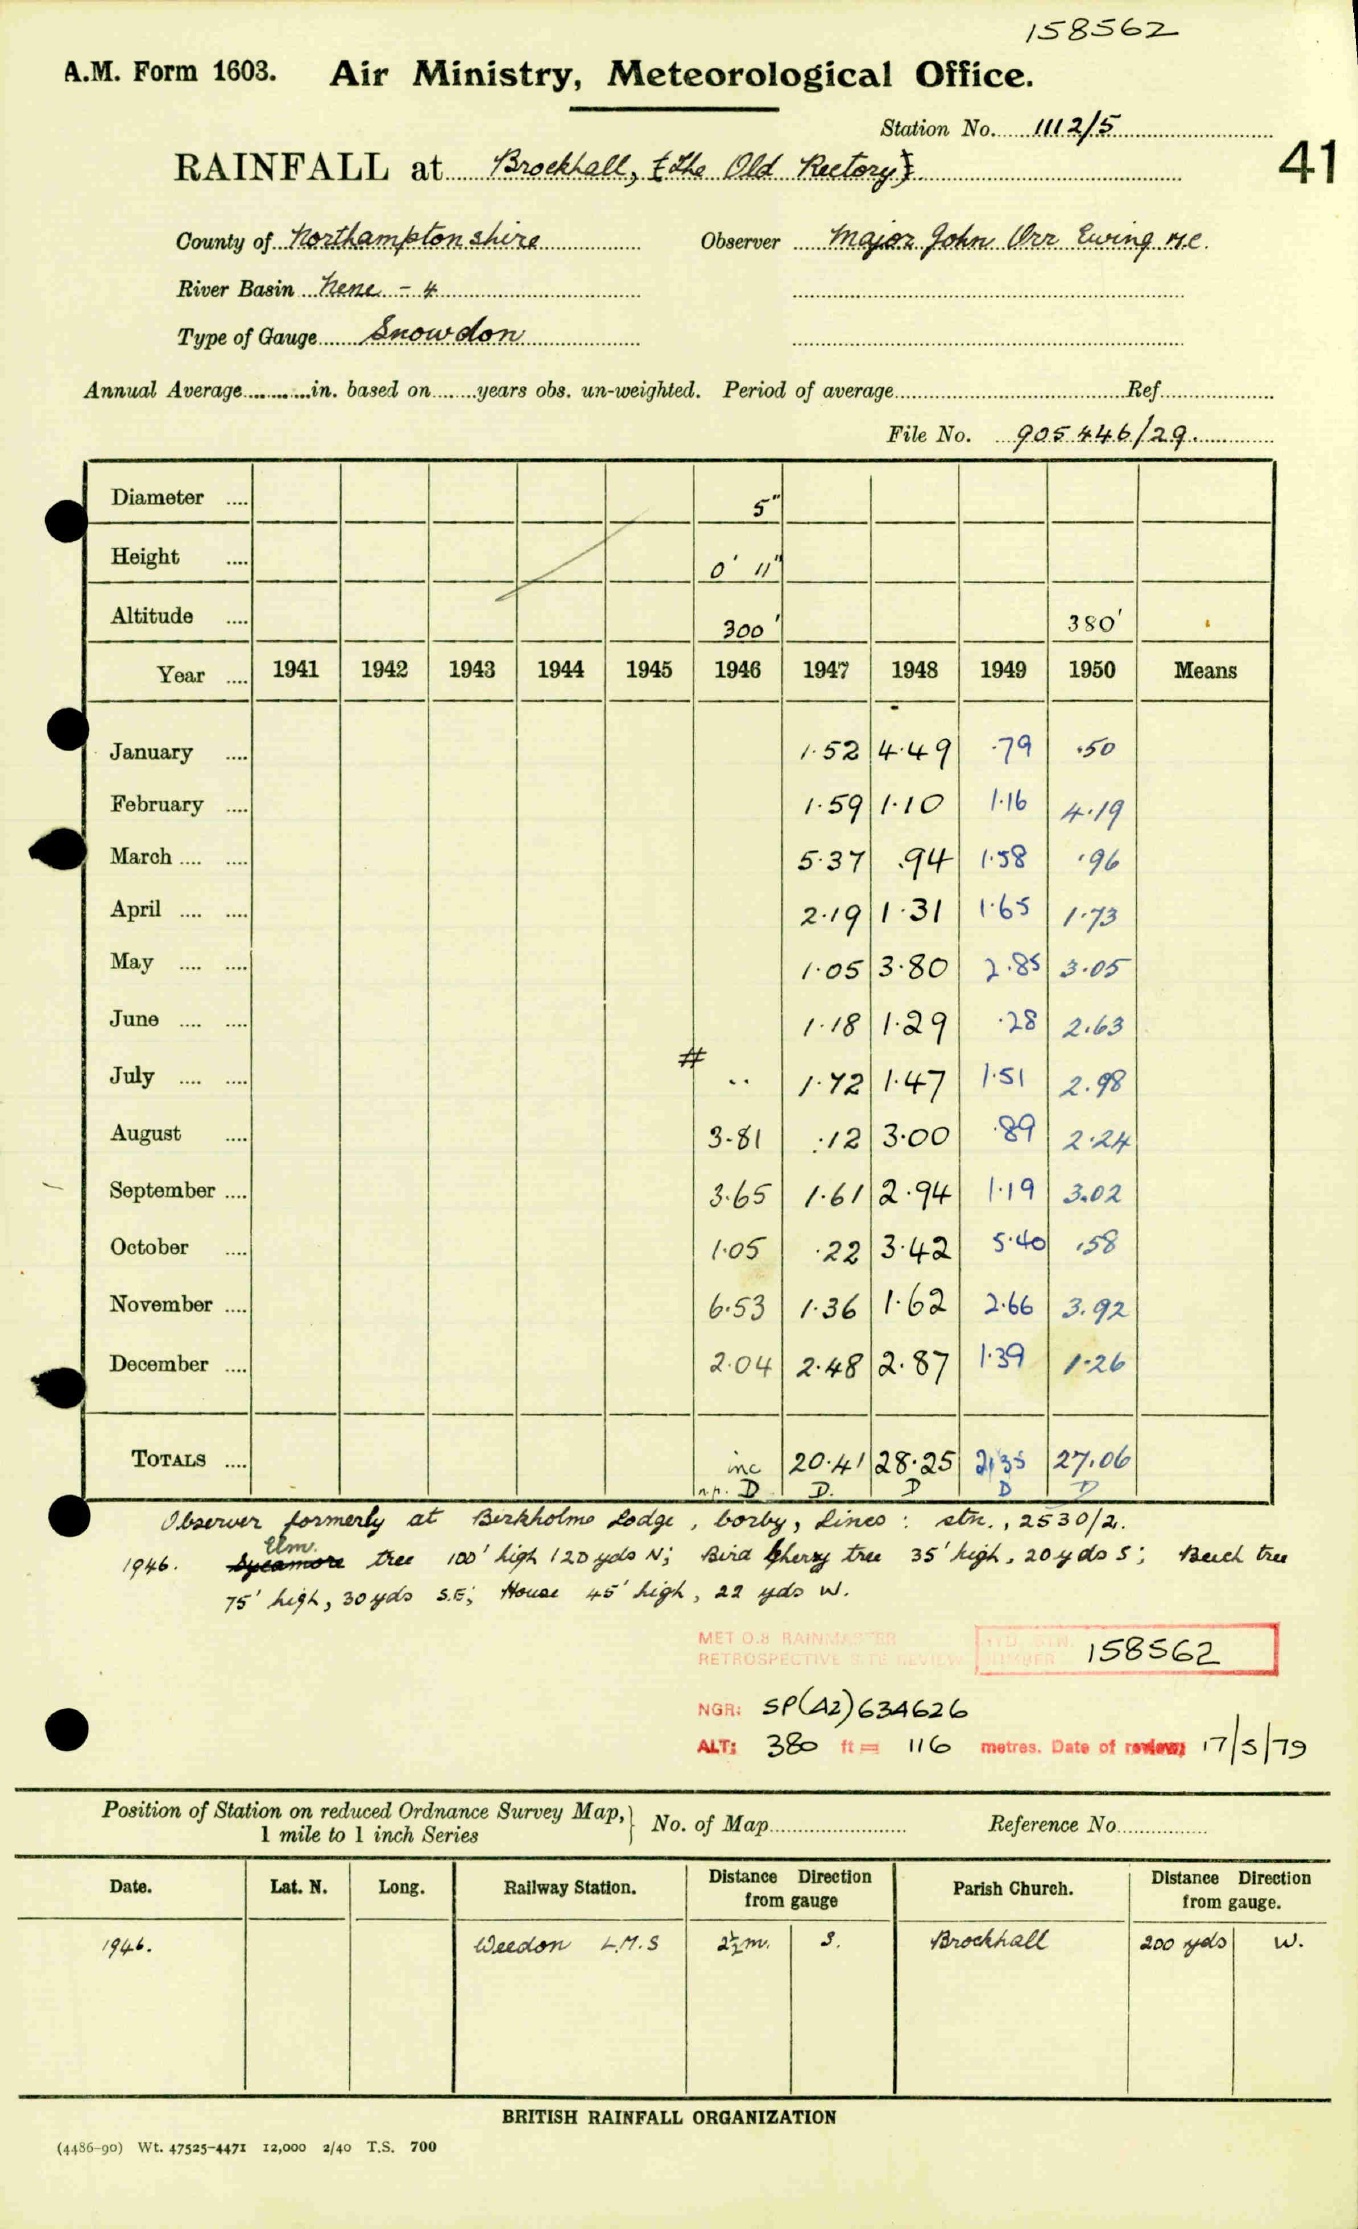 158562
A.M. Form 1603. Air Ministry, Meteorological Office.
Station No. 1112/5
41
RAINFALL at Brockhall, (The Old Rectory)
County of Northamptonshire Observer Major John Orr Ewing M.C.
River Basin Nene - 4
Type of Gauge Snowdon
Annual Average in. based on years obs. un-weighted. Period of average Ref
File No. 905446/29.
Diameter 5"
Height 0' 11"
Altitude 300' 380'
Year 1941 1942 1943 1944 1945 1946 1947 1948 1949 1950 Means
January 1.52 4.49 .79 .50
February 1.59 1.10 1.16 4.19
March 5.37 .94 1.58 .96
April 2.19 1.31 1.65 1.73
May 1.05 3.80 2.85 3.05
June 1.18 1.29 .28 2.63
July # .. 1.72 1.47 1.51 2.98
August 3.81 .12 3.00 .89 2.24
September 3.65 1.61 2.94 1.19 3.02
October 1.05 .22 3.42 5.40 .58
November 6.53 1.36 1.62 2.66 3.92
December 2.04 2.48 2.87 1.39 1.26
TOTALS inc 20.41 28.25 21.35 27.06
n.p. D D. D D D
Observer formerly at Birkholme Lodge, Corby, Lincs: stn., 2530/2.
Elm.
1946. Sycamore tree 100' high 120 yds N; Bird Cherry tree 35' high, 20 yds S; Beech tree
75' high, 30 yds S.E; House 45' high, 22 yds W.
MET O.8 RAINMASTER
RETROSPECTIVE SITE REVIEW HYD. STN. NUMBER 158562
NGR: SP(42)634626
ALT: 380 ft = 116 metres. Date of review: 17/5/79
Position of Station on reduced Ordnance Survey Map, 1 mile to 1 inch Series } No. of Map Reference No
Date. Lat. N. Long. Railway Station. Distance Direction from gauge Parish Church. Distance Direction from gauge.
1946. Weedon L.M.S 2½m. S. Brockhall 200 yds W.
BRITISH RAINFALL ORGANIZATION
(4486-90) Wt. 47525-4471 12,000 2/40 T.S. 700